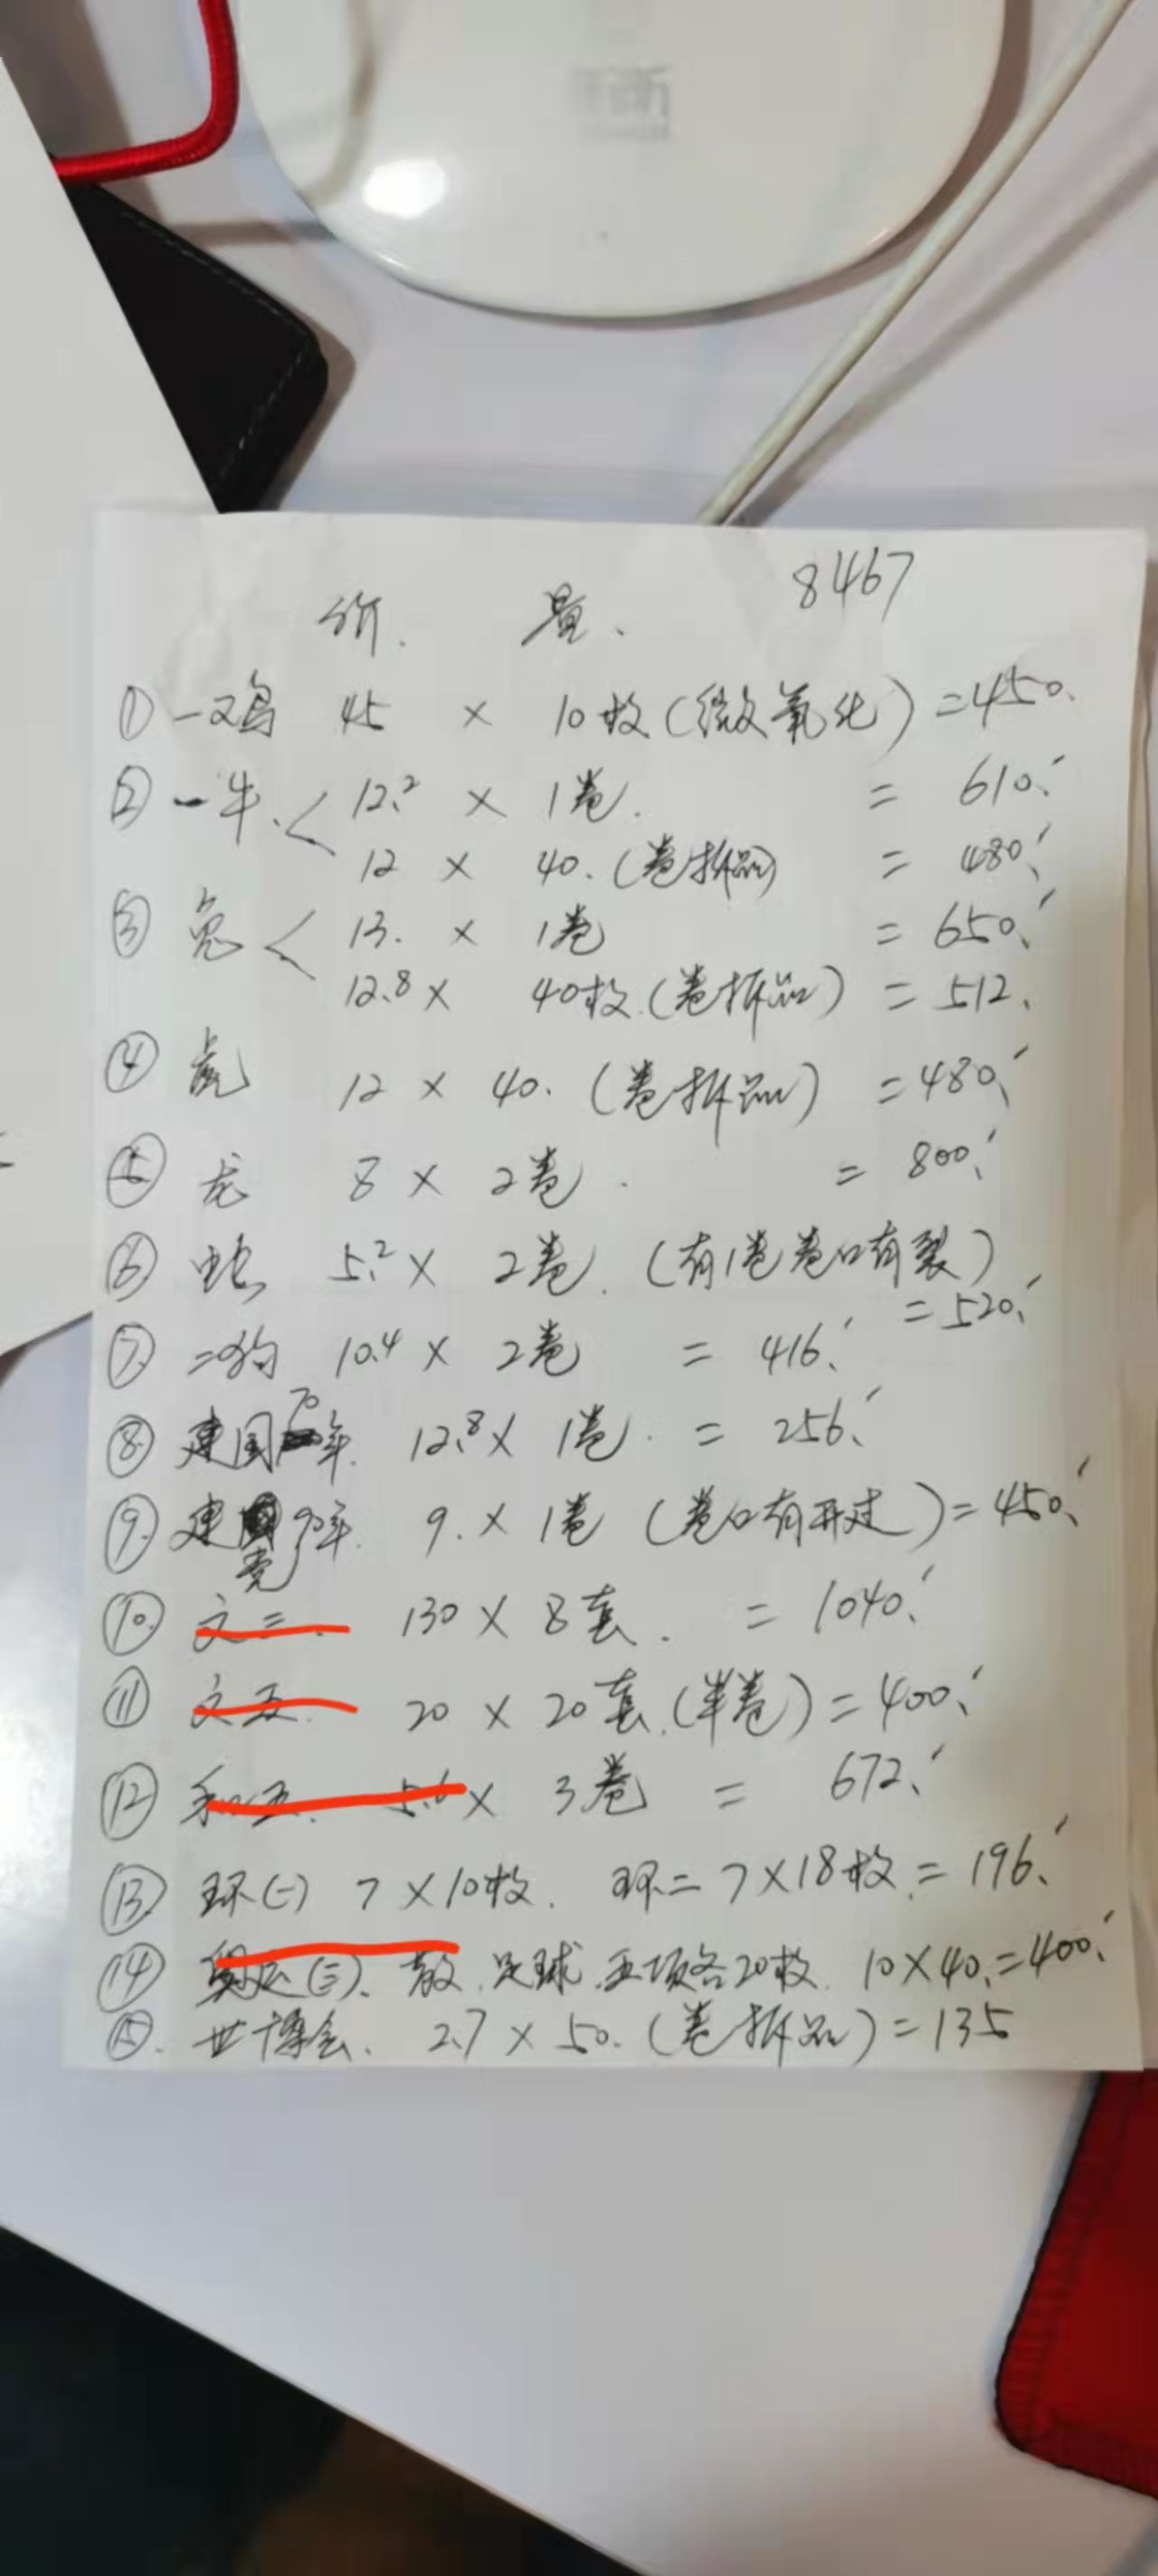 8467
价. 量、
① 一鸡 45 × 10枚(微氧化) =450、
② 一牛、< 12.² × 1卷. = 610、
12 × 40. (卷拆品) = 480、
③ 兔 < 13. × 1卷 = 650、
12.8 × 40枚.(卷拆品) = 512、
④ 虎 12 × 40. (卷拆品) =480、
⑤ 龙 8 × 2卷. = 800、
⑥ 蛇 5.² × 2卷. (有1卷卷口有裂)
=520、
⑦ 二狗 10.4 × 2卷 = 416、
⑧ 建国70年. 12.8 × 1卷. = 256、
⑨ 建党90年. 9. × 1卷 (卷口有开过) =450、
⑩ 文二. 130 × 8套. = 1040、
⑪ 文五. 20 × 20套.(半卷) = 400、
⑫ 和五. 5.6 × 3卷 = 672、
⑬ 环(一) 7 × 10枚. 环二 7 × 18枚.= 196、
⑭ 奥运(三)、散.足球.五项各20枚. 10×40.=400、
⑮. 世博会、 2.7 × 50. (卷拆品) = 135